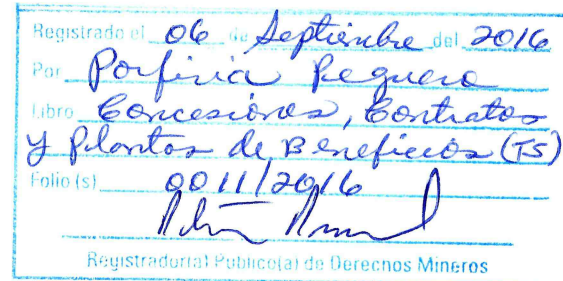 Registrado el 06 de Septiembre del 2016
Por Porfiria Peguero
Libro Concesiones, Contratos
y Plantas de Beneficios (TS)
Folio (s) 0011/2016
Registrador(a) Público(a) de Derechos Mineros